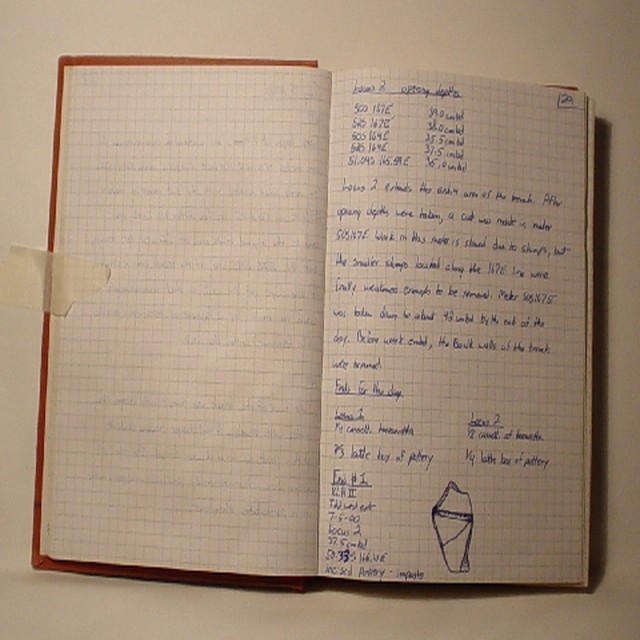 Locus 2 opening depths
29
50S 167E 39.0 cmbd
52S 167E 38.0 cmbd
50S 164E 35.5 cmbd
52S 164E 37.5 cmbd
51.04S 165.59E 35.0 cmbd
Locus 2 extends the entire area of the trench. After
opening depths were taken, a cut was made in meter
50S167E. Work in this meter is slowed due to stumps, but
the smaller stumps located along the 167E line were
finally weakened enough to be removed. Meter 50S167E
was taken down to about 42 cmbd by the end of the
day. Before work ended, the Baulk walls of the trench
were
Finds for the day.
Locus 1
Locus 2
1/2 of terracotta
2/3 bottle box of pottery
1/4 bottle box of pottery
Find # 1
7-5-00
Locus 2
37.5 cmbd
50.33S 166.10E
incised Pottery - impasto